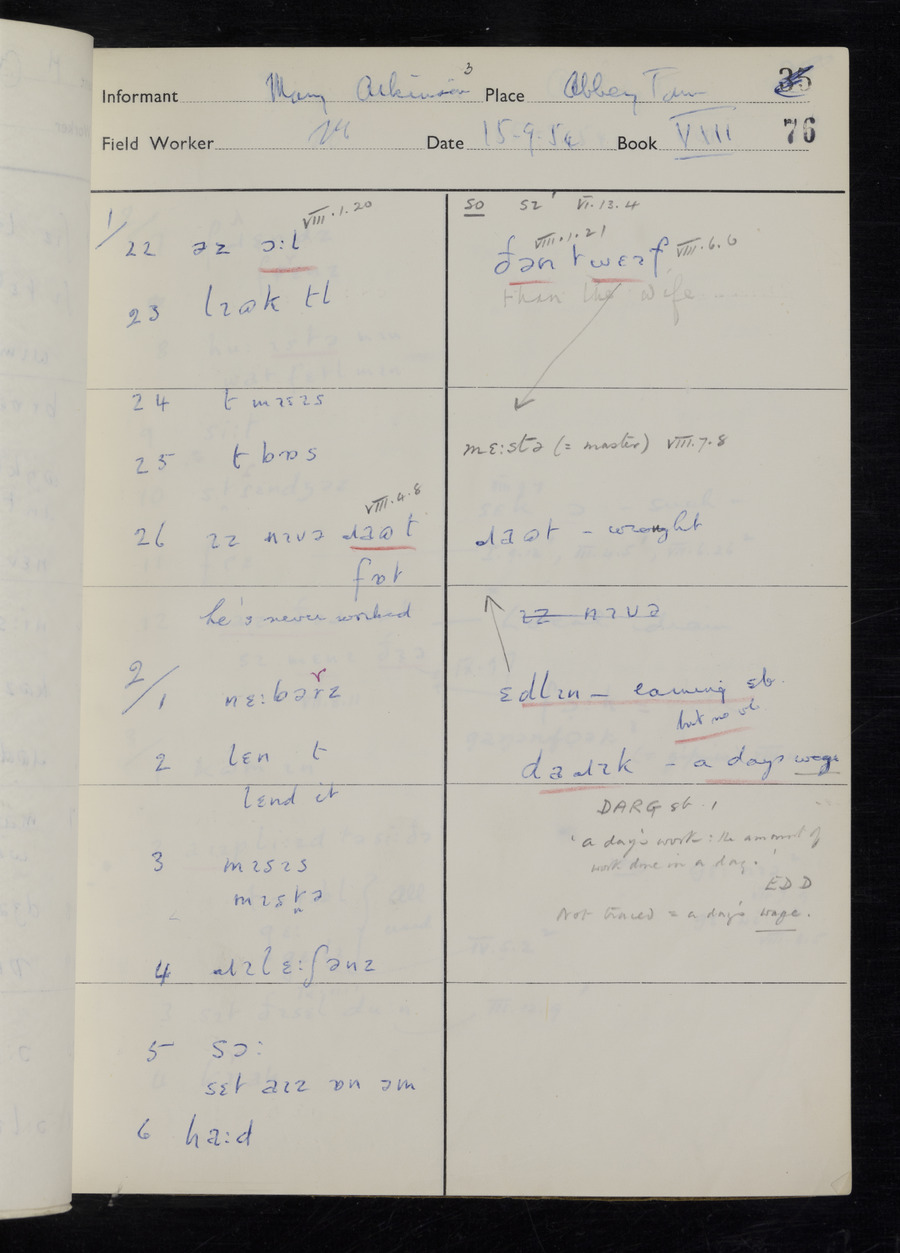 3
Informant Mary Atkinson Place Abbey Town 35
Field Worker Date 15-9-54 Book VIII 76
1/
VIII.1.20
22 əz ɔ:l
23 lɪək tl
24 t mɪsɪs
25 t bɒs
VIII.4.8
26 ɪz nɪvə
fɒt
he's never worked
2/
1 nɛ:bəɾz
2 lɛn t
lend it
3 mɪsɪs
mɪstə
4 ɹɪlɛ:ʃənz
5 sɔ:
sɛt aɪz ɒn əm
6 ha:d
so VI.13.4
VIII.1.21
ðən t wɛɪf VIII.6.6
than the wife
mɛ:stə (= master) VIII.7.8
- wrought
ɪz nɪvə
ɛdlɪn – earning sb.
but no vb.
- a days wage
DARG sb. 1
'a day's work: the amount of
work done in a day.'
EDD
Not traced = a day's wage.